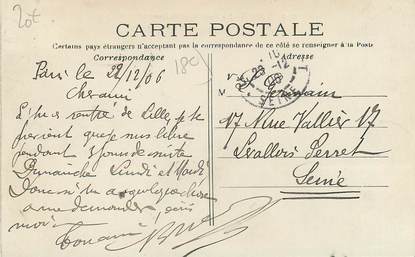 20f
CARTE POSTALE
Certains pays étrangers n'acceptant pas la correspondance de ce côté se renseigner à la Poste
Correspondance
Adresse
180
Paris le 28/12/06
Cher ami
rentré de Lille, je te
préviens que je suis libre
pendant 3 jours de suite
Dimanche Lundi et Mardi
Donc si tu as quelque chose
a me demander, écris
moi
Ton ami
29-12
SEINE
M Germain
17 Rue Vallier 17
Levallois Perret
Seine